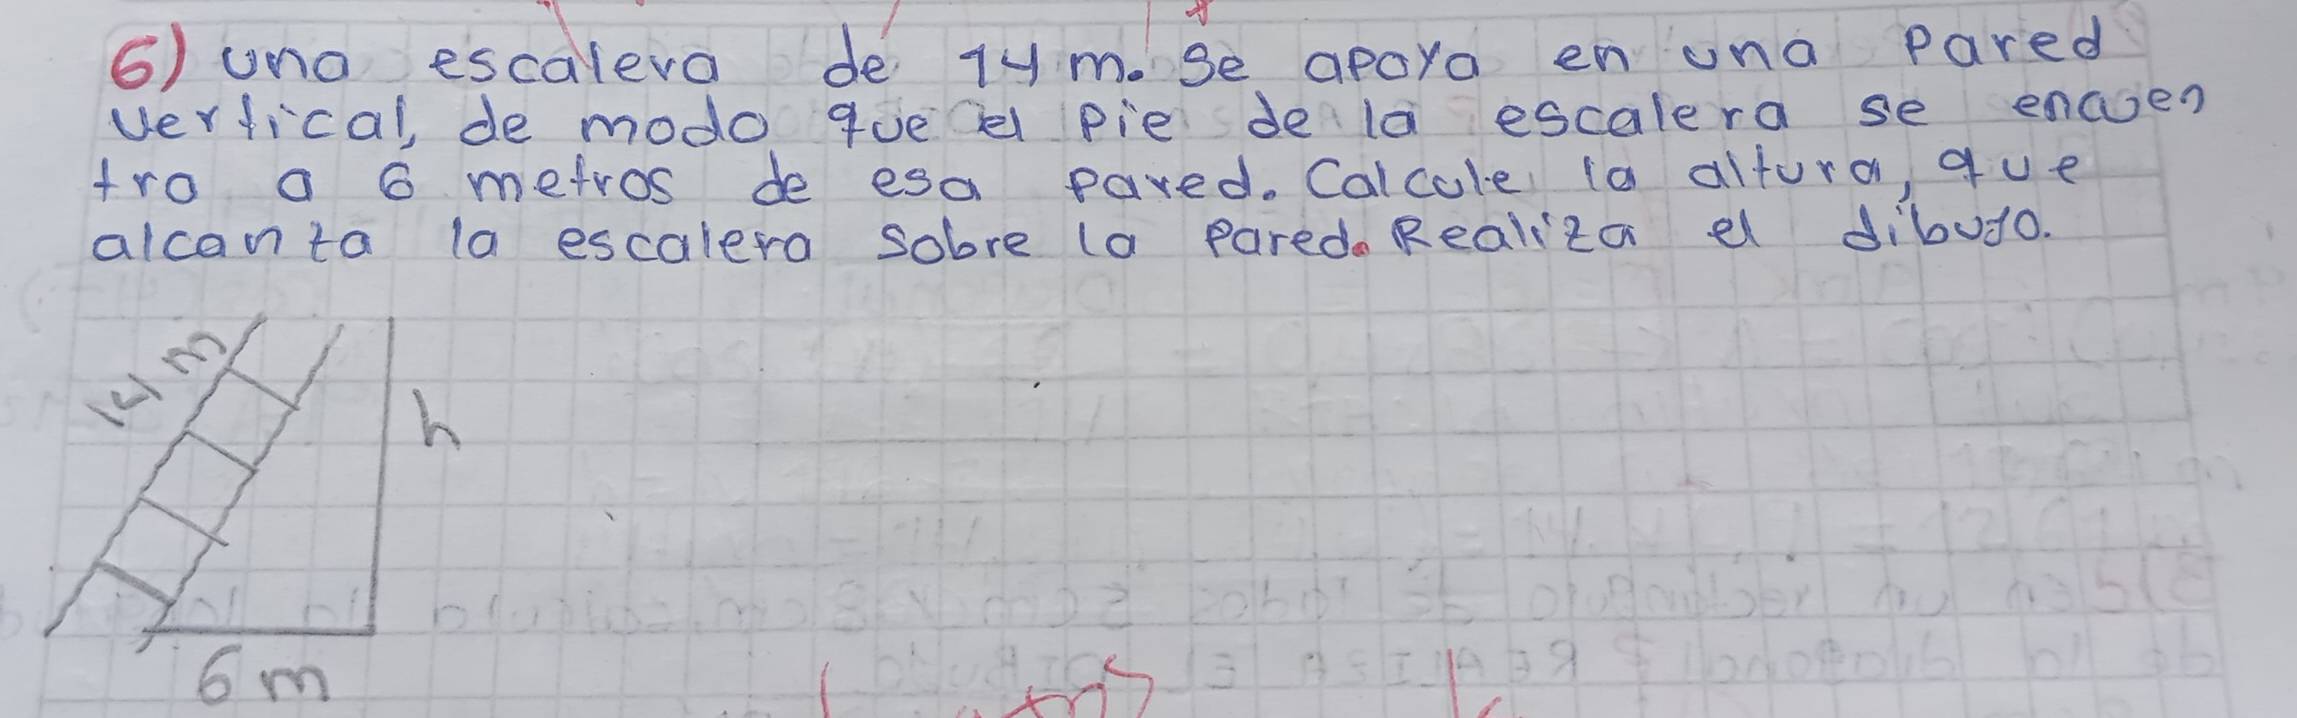 6) una escalera de 14 m. Se apoya en una pared
vertical, de modo que el pie de la escalera se encuen
tra a 6 metros de esa pared. Calcule la altura, que
alcanza la escalera sobre la pared. Realiza el dibujo.
14 m
h
6 m